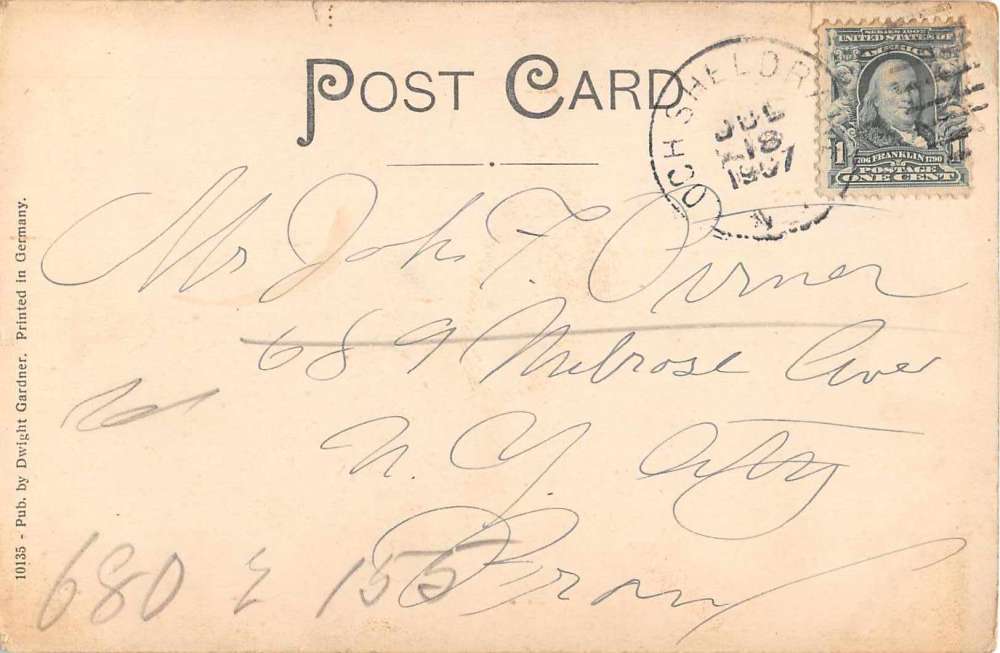 POST CARD
OCH SHELDR
JUL
18
1907
N
SERIES 1902
UNITED STATES OF
AMERICA
1 1
1706 FRANKLIN 1790
POSTAGE
ONE CENT
Mr John F. Turner
689 Melrose Ave
N. Y. City
Bronx
680 E 155
10135 - Pub. by Dwight Gardner. Printed in Germany.